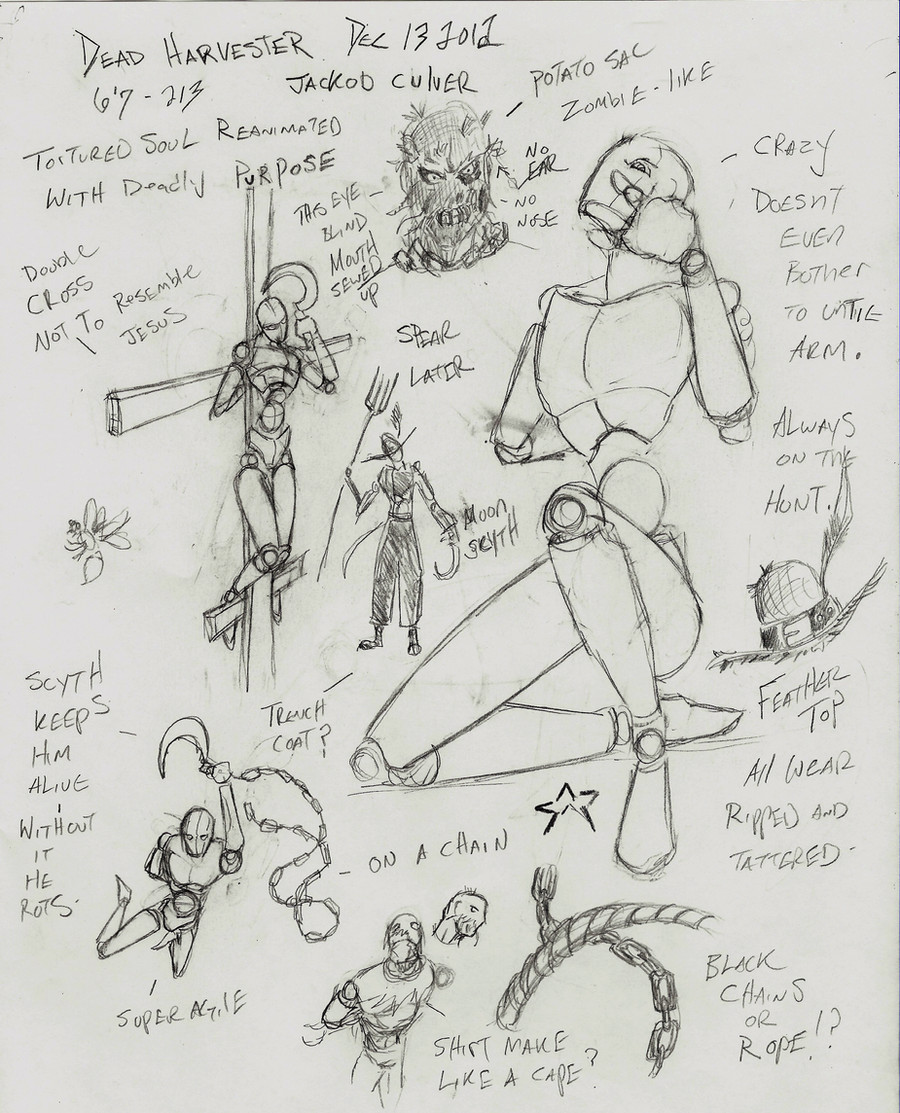 DEAD HARVESTER DEC 13 2012
6'7 - 213 JACKOD CULVER
TORTURED SOUL REANIMATED
WITH DEADLY PURPOSE
POTATO SAC
ZOMBIE-LIKE
NO
EAR
NO
NOSE
THIS EYE
BLIND
MOUTH
SEWED
UP
CRAZY
DOESN'T
EVEN
BOTHER
TO UNTIE
ARM.
DOUBLE
CROSS
NOT TO RESEMBLE
JESUS
SPEAR
LATER
MOON
SCYTH
ALWAYS
ON THE
HUNT.
FEATHER
TOP
TRENCH
COAT?
SCYTH
KEEPS
HIM
ALIVE
WITHOUT
IT
HE
ROTS.
ON A CHAIN
All WEAR
RIPPED AND
TATTERED-
SUPER AGILE
SHIRT MAKE
LIKE A CAPE?
BLACK
CHAINS
OR
ROPE!?